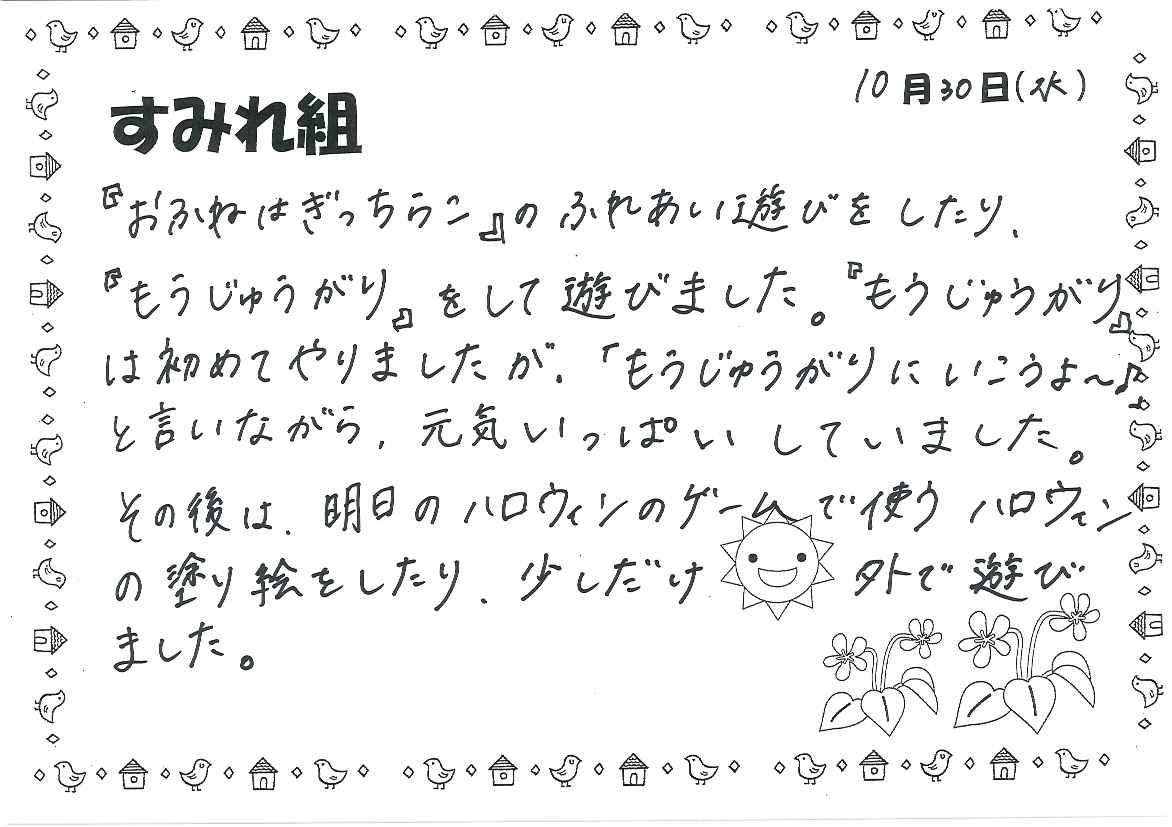 10月30日(水)
すみれ組
『おふねはぎっちらこ』のふれあい遊びをしたり、
『もうじゅうがり』をして遊びました。『もうじゅうがり』
は初めてやりましたが、「もうじゅうがりにいこうよ～♪」
と言いながら、元気いっぱいしていました。
その後は、明日のハロウィンのゲームで使うハロウィン
の塗り絵をしたり、少しだけ外で遊び
ました。